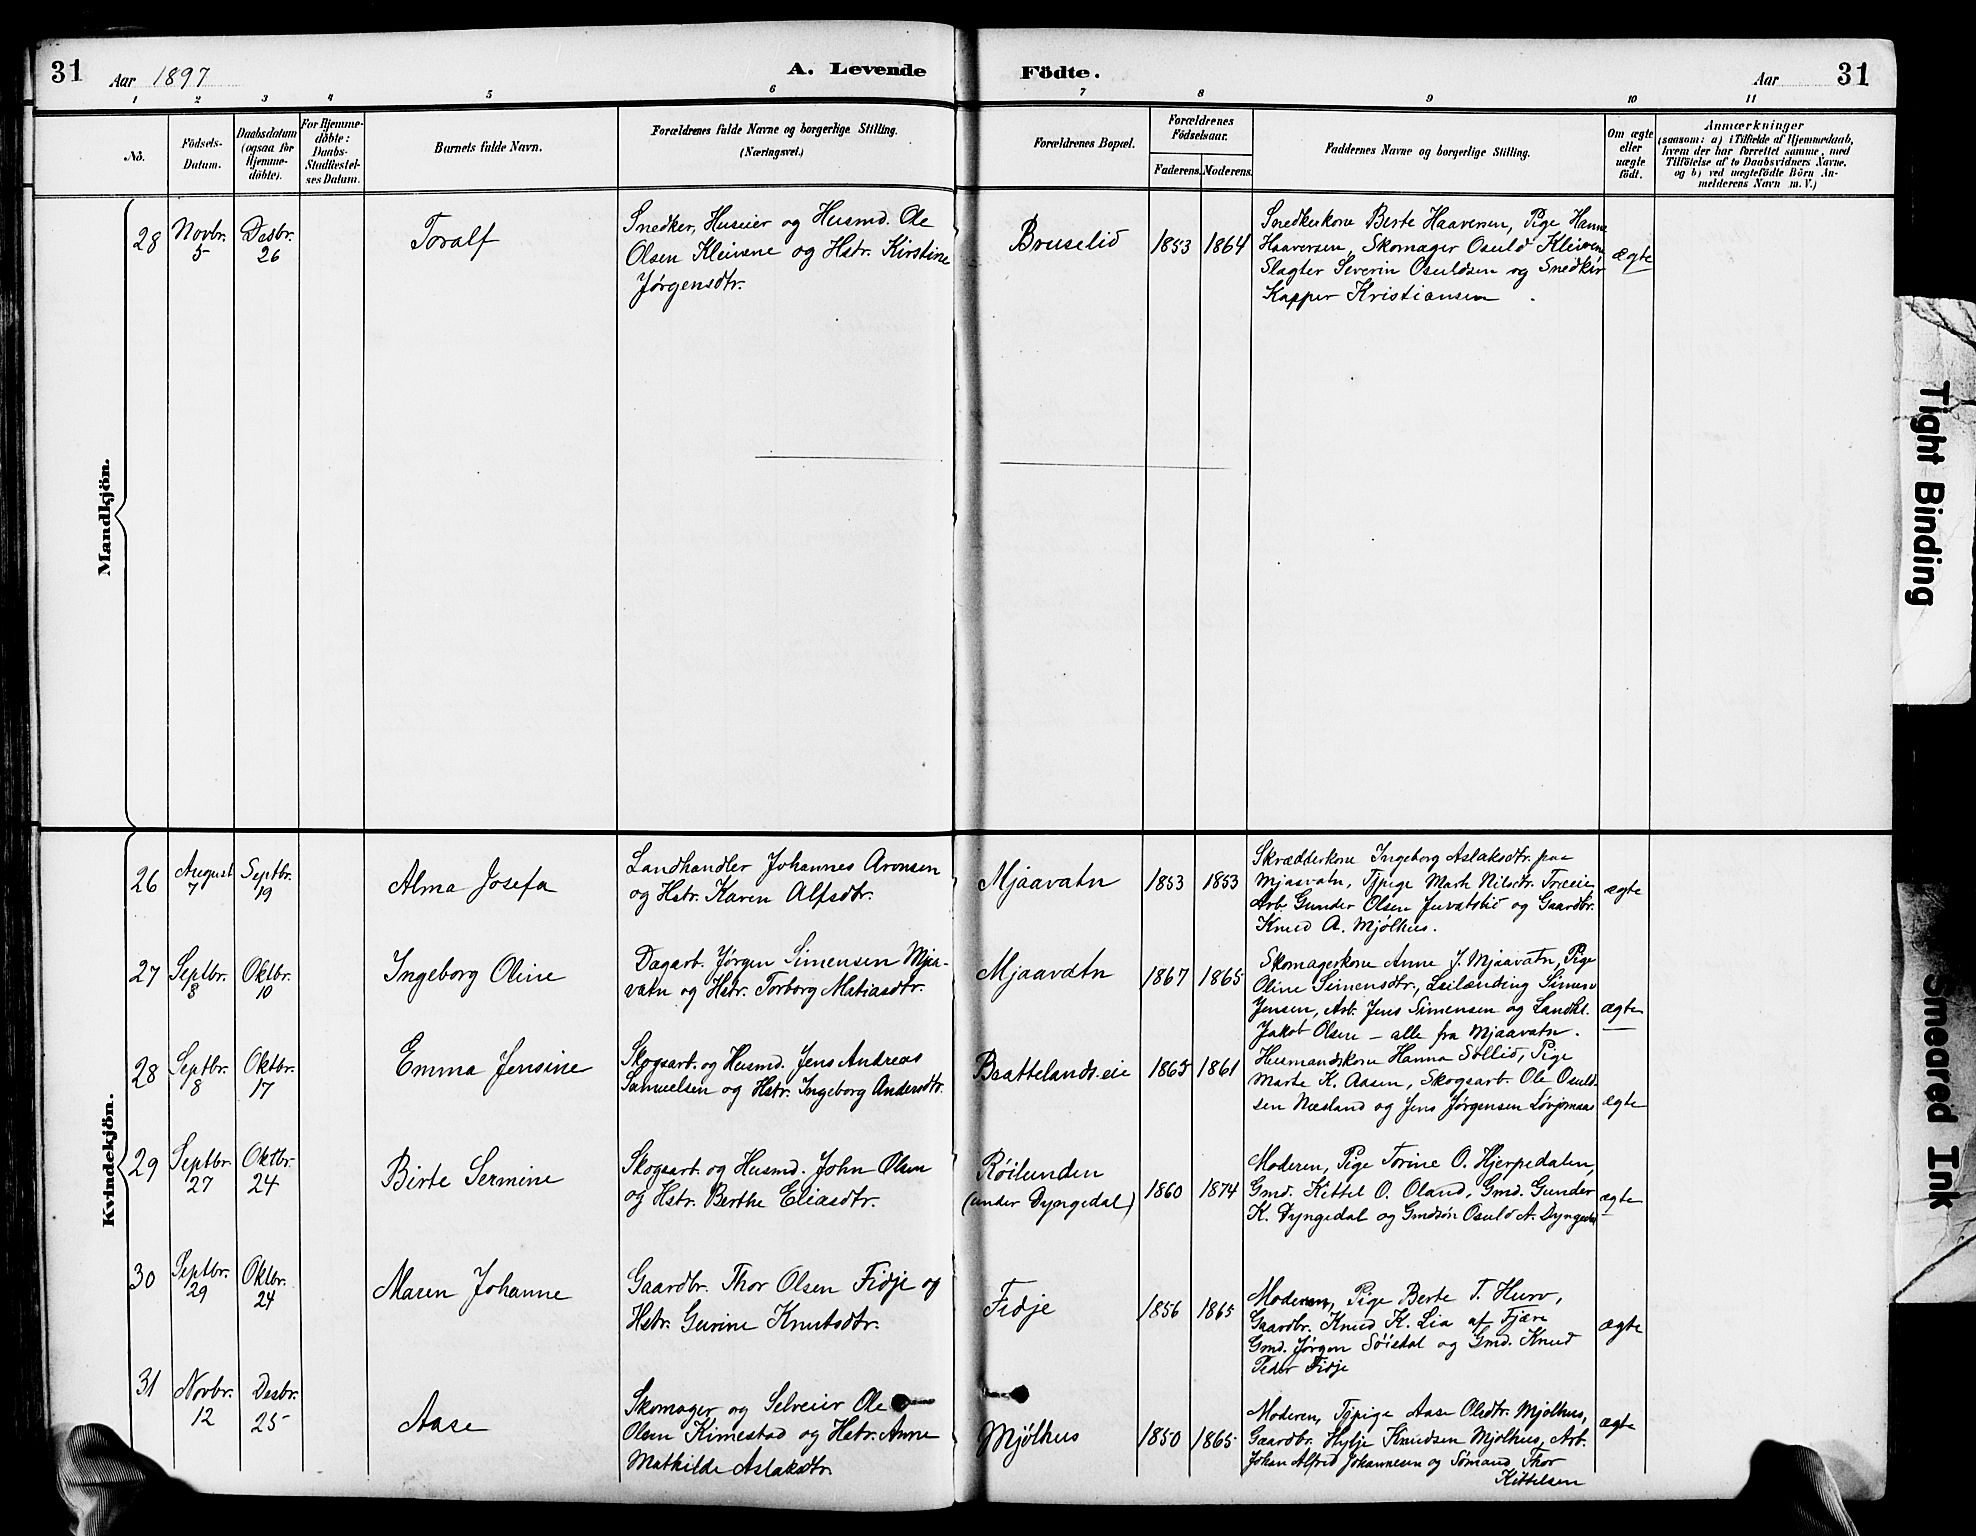 31 Aar 1897 A. Levende Födte. Aar 31
1 2 3 4 5 6 7 8 9 10 11
No.
Födsels-
Datum.
Daabsdatum
(ogsaa for
Hjemme-
döbte).
For Hjemme-
döbte:
Daabs-
Stadfæstel-
ses Datum.
Barnets fulde Navn.
Forældrenes fulde Navne og borgerlige Stilling.
(Næringsvei.)
Forældrenes Bopæl.
Forældrenes
Födselsaar.
Faderens. Moderens.
Faddernes Navne og borgerlige Stilling.
Om ægte
eller
uægte
födt.
Anmærkninger
(saasom: a) i Tilfælde af Hjemmedaab,
hvem der har forrettet samme, med
Tilföielse af to Daabsvidners Navne,
og b) ved uægtefödte Börn An-
melderens Navn m. V.)
Mandkjön.
28
Novbr.
5
Desbr.
26
Toralf
Snedker, Huseier og Husmd. Ole
Olsen Kleivene og Hstr. Kirstine
Jørgensdtr.
Bruselid
1853 1864
Snedkerkone Berte Haaversen, Pige Hanne
Haaversen, Skomager Osuld Kleivene
Slagter Severin Osuldsen og Snedker
Kasper Kristiansen
ægte
Kvindekjön.
26
August
7
Septbr.
19
Alma Josefa
Landhandler Johannes Aronsen
og Hstr. Karen Alfsdtr.
Mjaavatn
1853 1853
Skrædderkone Ingeborg Aslaksdtr. paa
Mjaavatn, Tjpige Marte Nilsdtr.
Arb. Gunder Olsen og Gaardbr.
Knud A. Mjølhus.
ægte
27
Septbr.
3
Oktbr.
10
Ingeborg Oline
Dagarb. Jørgen Simensen Mjaa-
vatn og Hstr. Torborg Matiasdtr.
Mjaavatn
1867 1865
Skomagerkone Anne J. Mjaavatn, Pige
Oline Simensdtr., Leilænding Simen
Jensen, Arb. Jens Simensen og Landhl.
Jakob Olsen – alle fra Mjaavatn.
ægte
28
Septbr.
8
Oktbr.
17
Emma Jensine
Skogsarb. og Husmd. Jens Andreas
Samuelsen og Hstr. Ingeborg Andersdtr.
Brattelands.eie
1865 1861
Husmandskone Hanna Søllid, Pige
Marte K. Aasen, Skogsarb. Ole Osuld-
sen Næsland og Jens Jørgensen
ægte
29
Septbr.
27
Oktbr.
24
Birte Sermine
Skogsarb. og Husmd. John Olsen
og Hstr. Berthe Eliasdtr.
Røilunden
(under Dyngedal)
1860 1874
Moderen, Pige Torine O. Hjerpedalen,
Gmd. Kittel O. Oland, Gmd. Gunder
K. Dyngedal og Gmdsøn Osuld A. Dyngedal
ægte
30
Septbr.
29
Oktbr.
24
Maren Johanne
Gaardbr. Thor Olsen Fidje og
Hstr. Gurine Knutsdtr.
Fidje
1856 1865
Moderen, Pige Berte T. Hurv,
Gaardbr. Knud K. Lia af Fjære
Gmd. Jørgen Søistal og Gmd. Knud
Peder Fidje
ægte
31
Novbr.
12
Desbr.
25
Aase
Skomager og Selveier Ole
Olsen Kimestad og Hstr. Anne
Mathilde Aslaksdtr.
Mjölhus
1850 1865
Moderen, Tjpige Aase Olsdtr. Mjølhus,
Gaardbr. Hylje Knudsen Mjølhus, Arb.
Johan Alfred Johannesen og Sømand Thor
Kittelsen
ægte
Tight Binding
Smeared Ink